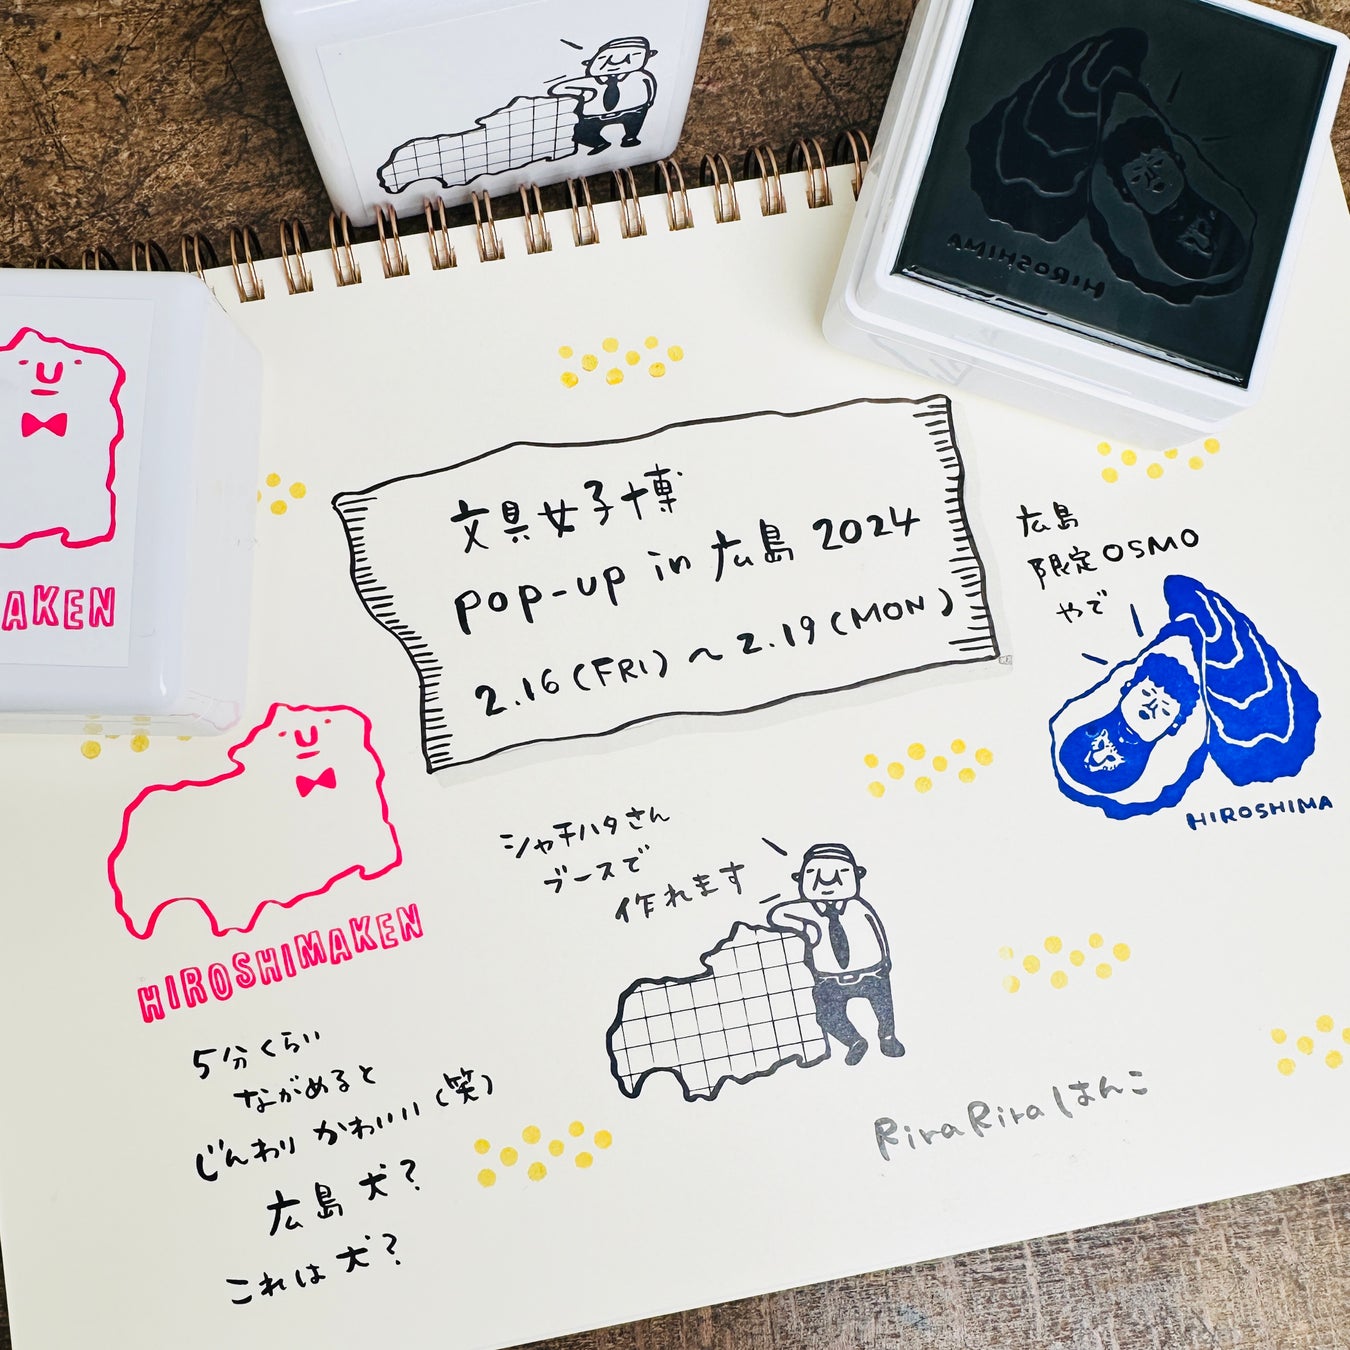 HIROSHIMA
AKEN
文具女子博
pop-up in 広島 2024
2.16(FRI)〜2.19(MON)
広島
限定OSMO
やで
HIROSHIMA
シャチハタさん
ブースで
作れます
HIROSHIMAKEN
5分くらい
ながめると
じんわりかわいい(笑)
広島犬?
これは犬?
RiraRiraはんこ